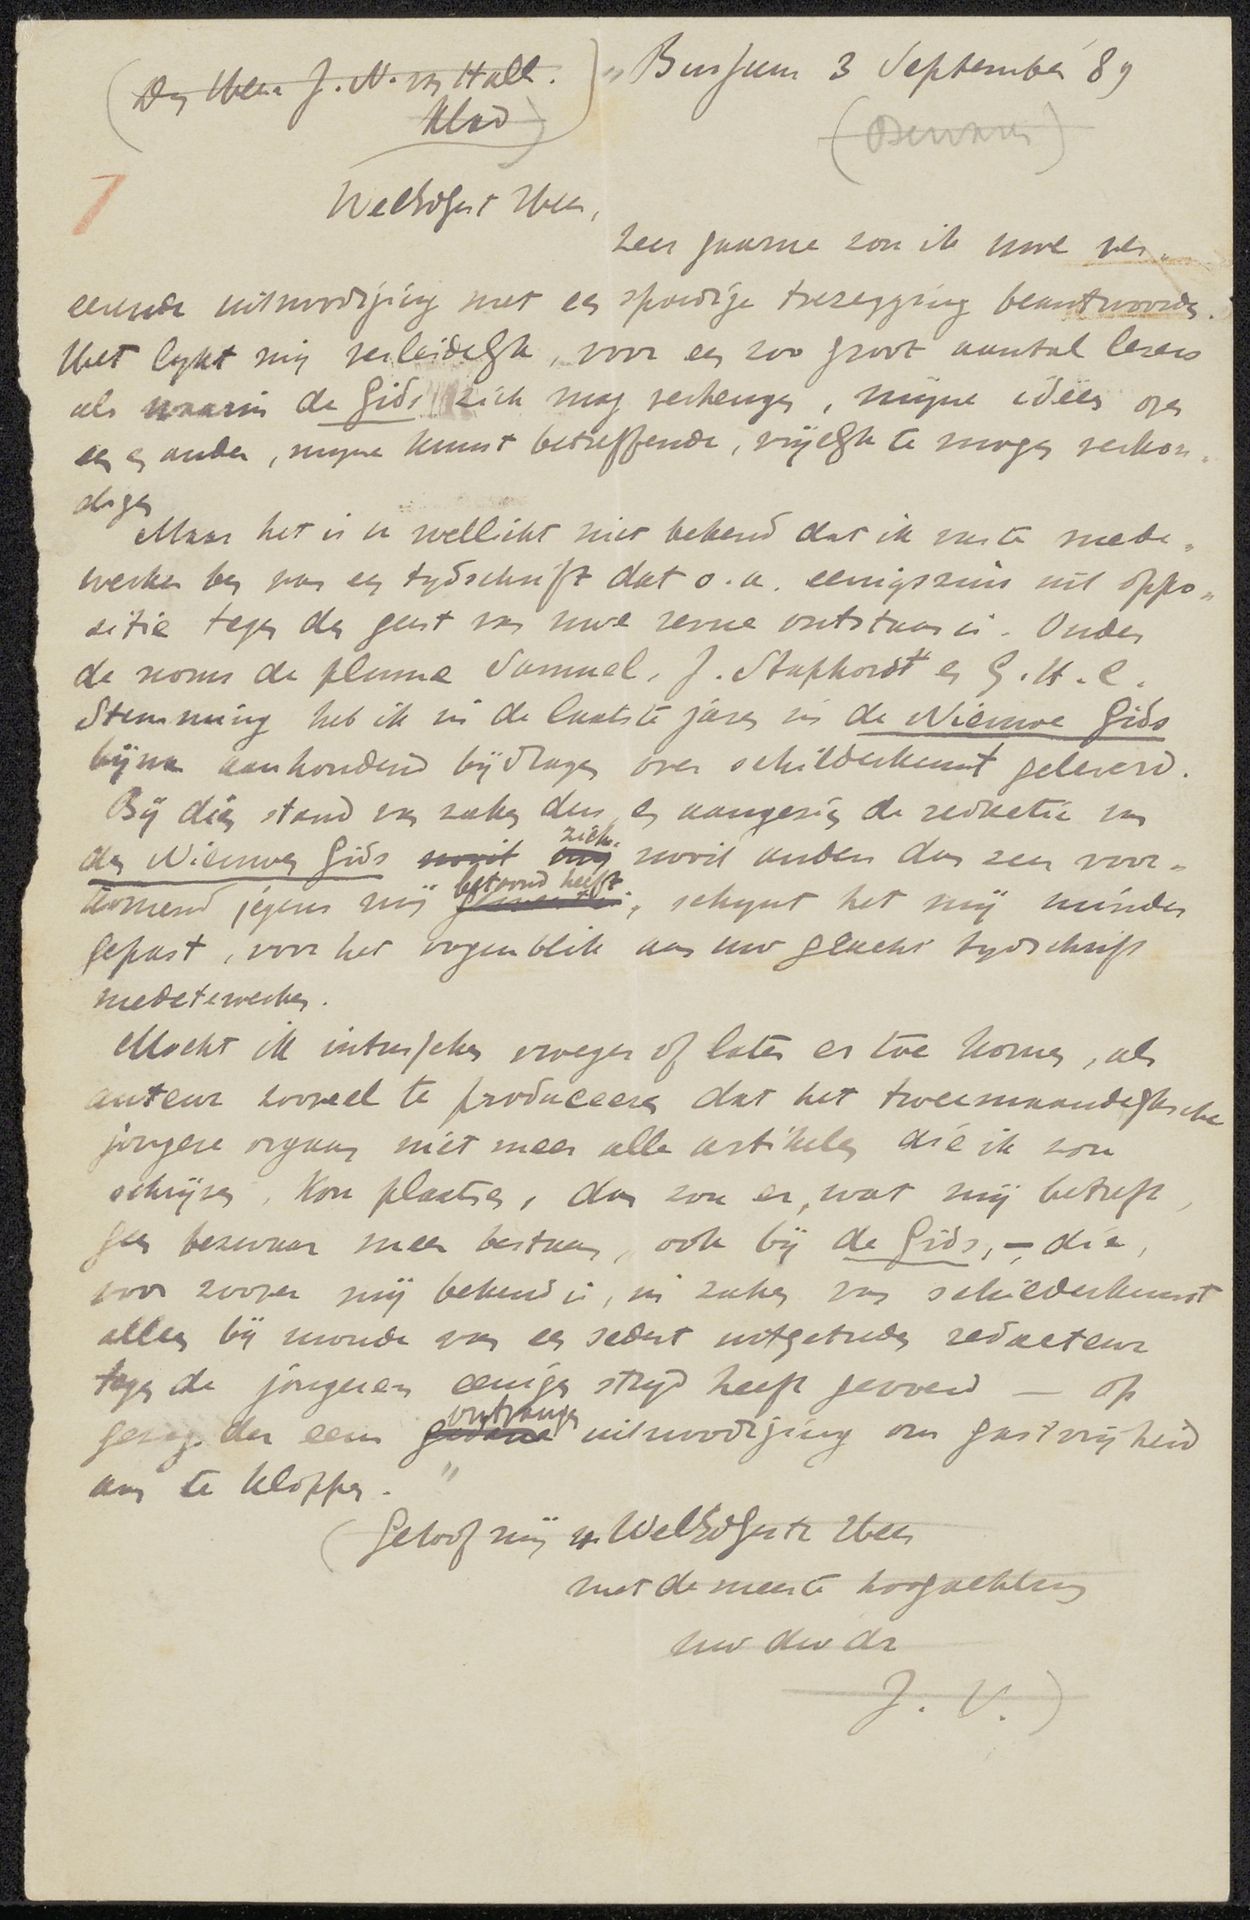 (Den Heer J. N. van Hall. Klad)
„Bussum 3 September 89
(Bewaren)
7
WelEdGest Heer,
Zeer gaarne zou ik uwe ver„
eerende uitnoodiging met een spoedige toezegging beantwoorden.
Het lijkt mij verleidelijk, voor een zoo groot aantal lezers
als waarin de Gids zich mag verheugen, mijne ideën over
een en ander, mijne kunst betreffende, vrijelijk te mogen verkon„
digen
Maar het is u wellicht niet bekend dat ik vaste mede„
werker ben van een tijdschrift dat o.a. eenigszins uit oppo„
sitie tegen den geest van uwe revue ontstaan is. Onder
de noms de plume Samuel, J. Staphorst en G. H. C.
Stemming heb ik in de laatste jaren in de Nieuwe Gids
bijna aanhoudend bijdragen over schilderkunst geleverd.
Bij dien stand van zaken dus en aangezien de redactie van
den Nieuwen Gids nooit zich nooit anders dan zeer voor„
komend jegens mij betoond heeft, schijnt het mij minder
gepast, voor het oogenblik aan uw geacht tijdschrift
medetewerken.
Mocht ik intusschen vroeger of later er toe komen, als
auteur zooveel te produceeren dat het tweemaandelijksche
jongere orgaan niet meer alle artikelen die ik zou
schrijven, kon plaatsen, dan zou er, wat mij betreft,
geen bezwaar meer bestaan, ook bij de Gids, – die,
voor zoover mij bekend is, in zaken van schilderkunst
alleen bij monde van een sedert uitgetreden redacteur
tegen de jongeren eenigen strijd heeft gevoerd — op
gezag der eens ontvangen uitnoodiging om gastvrijheid
aan te kloppen.„
(Geloof mij WelEdGeste Heer
met de meeste hoogachting
uw dw dr
J. V.)